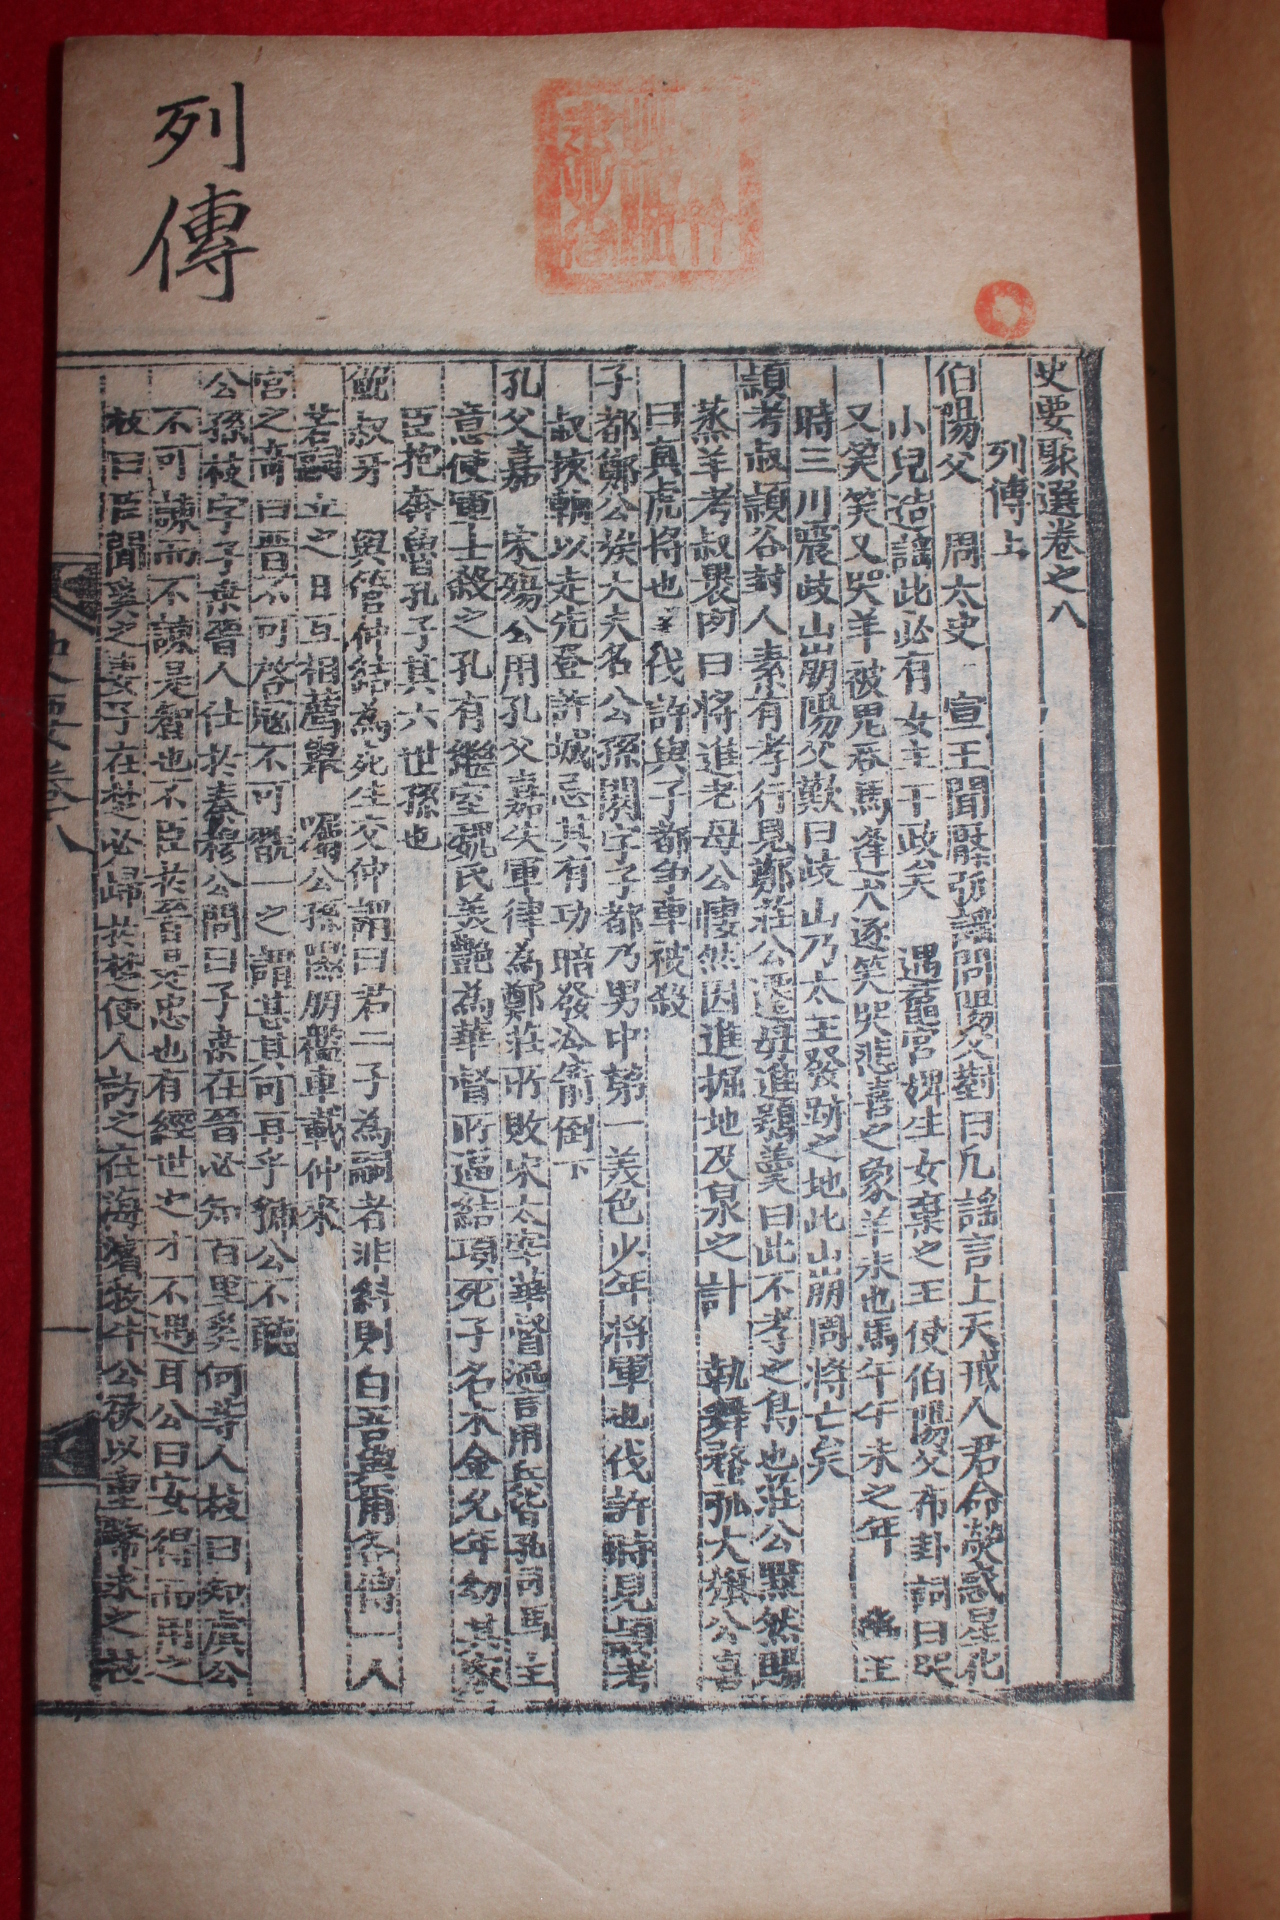 列傳
史要聚選卷之八
列傳上
伯陽父 周太史 宣王聞檿弧謠問陽父對曰凡謠言上天戒人君命熒惑星化
小兒造謠此必有女主干政矣 遇宮婢生女棄之王使伯陽父布卦詞曰哭
又笑笑又哭羊被鬼吞馬逢犬逐笑哭悲喜之象羊未也馬午午未之年 幽王
時三川震歧山崩陽父歎曰歧山乃太王發跡之地此山崩周將亡矣
頴考叔頴谷封人素有孝行見鄭莊公遷母進鴞羹曰此不孝之鳥也莊公默然賜
蒸羊考叔褁肉曰將進老母公悽然因進掘地及泉之計 執舞蝥弧大旗公喜
曰眞虎將也 伐許與子都爭車被殺
子都鄭公族大夫名公孫閼字子都乃男中第一美色少年將軍也伐許時見頴考
叔挾輈以走先登許城忌其有功暗發冷箭倒下
孔父嘉 宋殤公用孔父嘉失軍律為鄭莊所敗宋太宰華督流言用兵皆孔司馬主
意使軍士殺之孔有繼室魏氏美艷為華督所逼結項死子名木金允年幼其家
臣抱奔魯孔子其六世孫也
鮑叔牙 與管仲結為死生交仲謂曰君二子為嗣者非糾則白吾與爾各傅一人
若嗣立之日互相薦擧 囑公孫隰朋檻車載仲來
宮之奇曰晋不可啓寇不可翫一之謂甚其可再乎 公不聽
公孫枝字子桑晉人仕於秦穆公問曰子桑在晉必知百里奚何等人枝曰知虞公
不可諫而不諫是智也不臣於晉是忠也有經世之才不遇耳公曰安得而用之
枝曰昔聞奚之妻子在楚必歸於楚使人訪之在海濱牧牛公欲以重幣求之枝
史要卷八
一